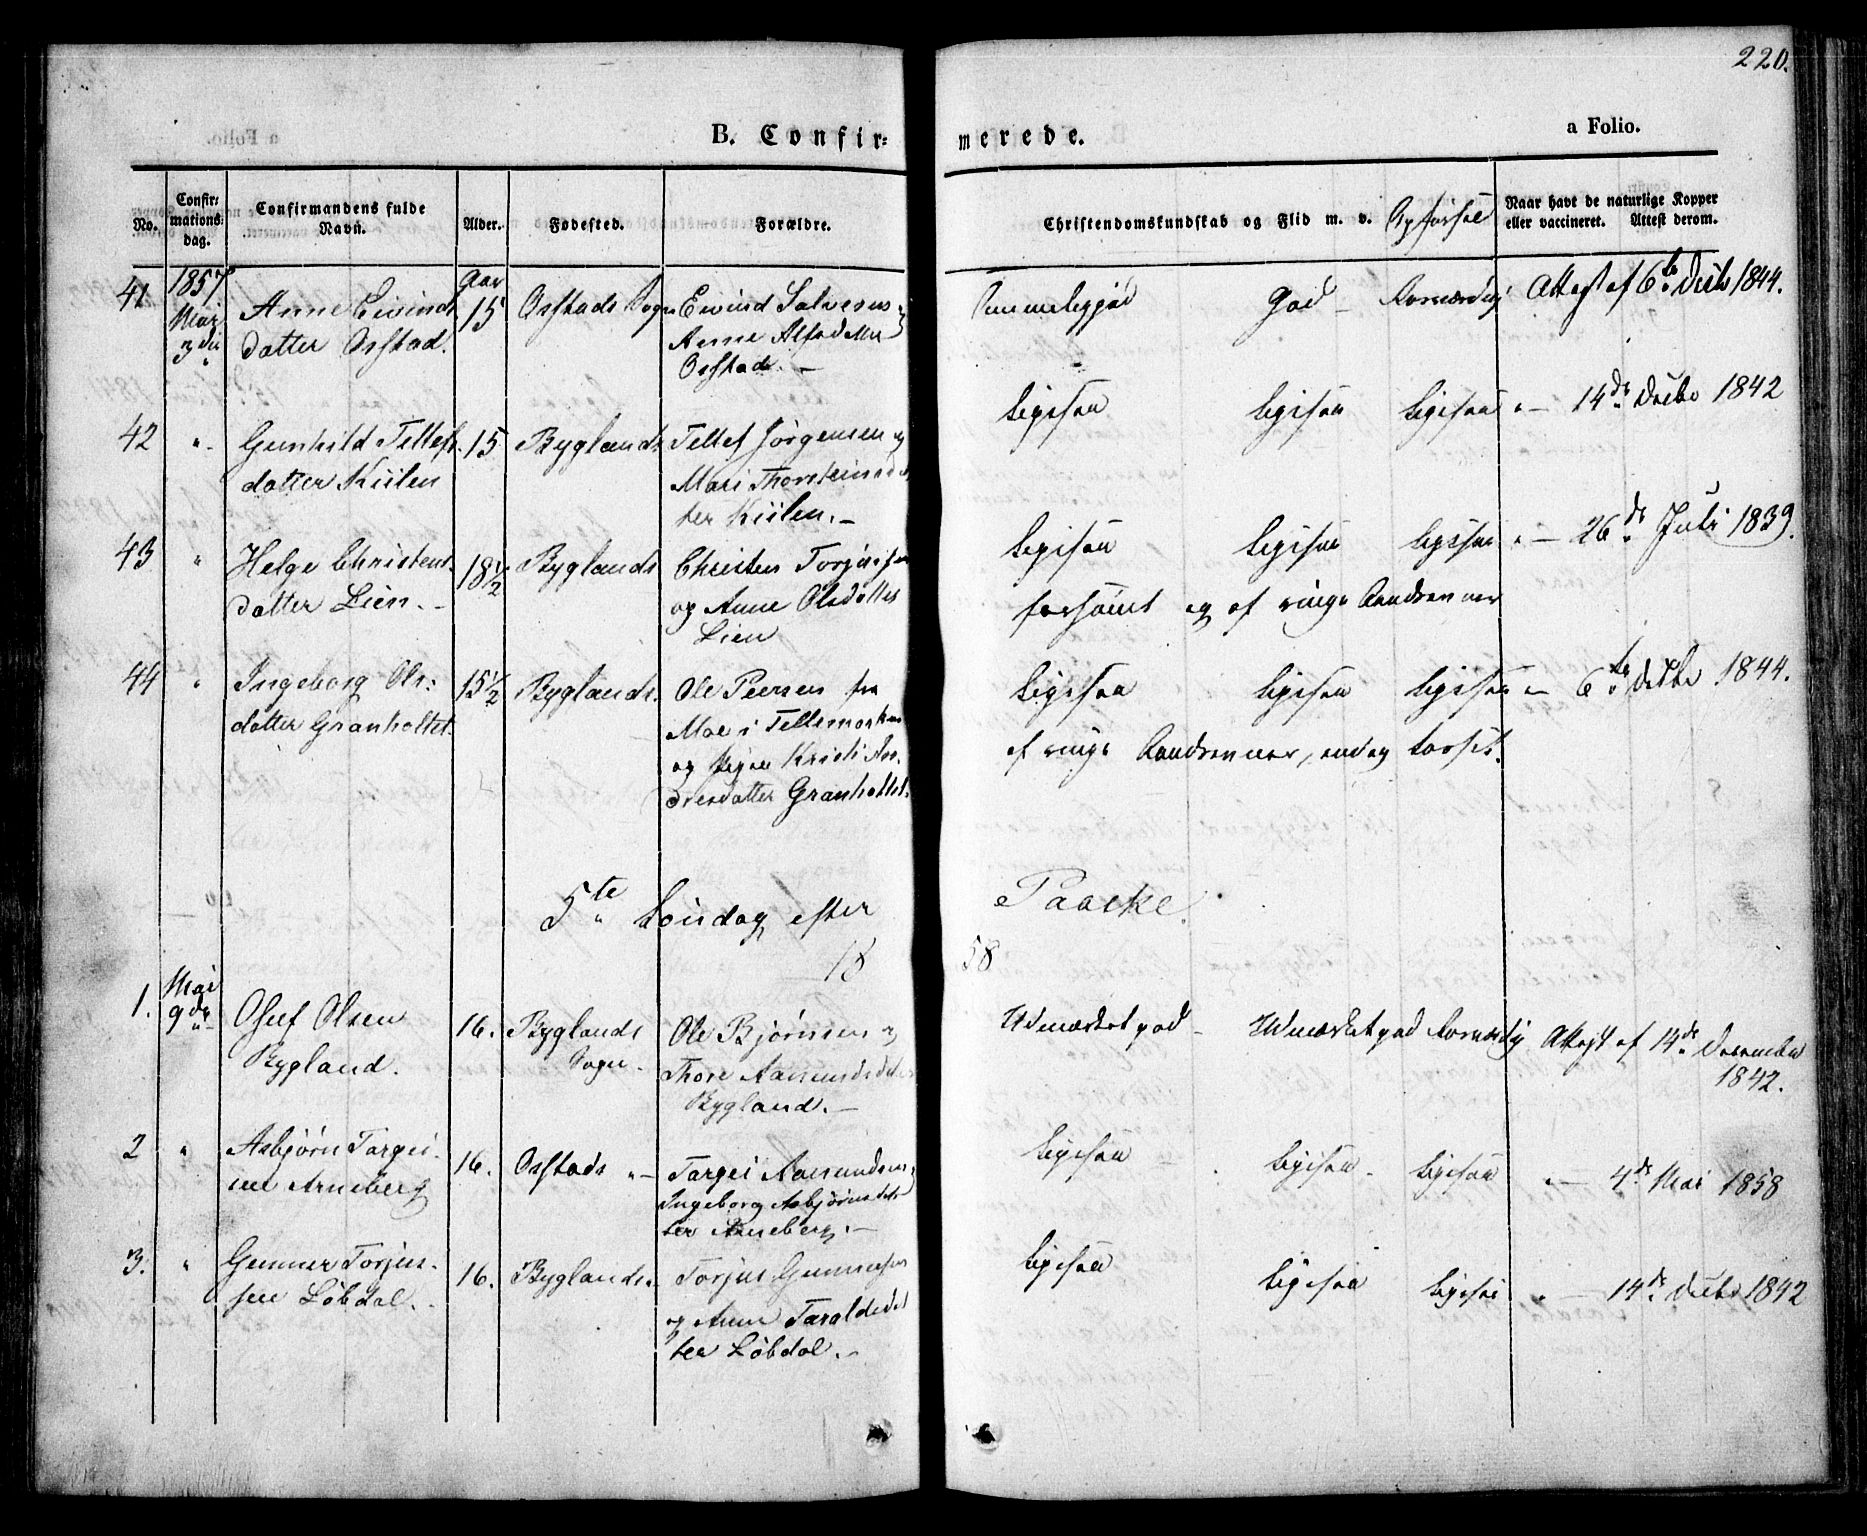 220.
B. Confir- merede.
a Folio.
No.
Confir-
mations-
dag.
Confirmandens fulde
Navn.
Alder.
Fødested.
Forældre.
Christendomskundskab og Flid m. v.
Opførsel
Naar havt de naturlige Kopper
eller vaccineret. Attest derom.
41 1857 Aar
Mai
3die
Anne Eivinds
datter Ostad.
15 Sogn Eivind
Anne
Ostad. —
god Attest af 6te Decb 1844.
42 " Gunhild Tellefs
datter Kiilen
15 Byglands Tellef Jørgensen og
Mari Thorsteinsdat
ter Kiilen. —
Ligesaa Ligesaa Ligesaa " — 14de Decbr 1842
43 " Helge Christens
datter Lien. —
18½ Byglands Christen Torjussen
og Anne Olsdatter
Lien
Ligesaa Ligesaa Ligesaa " — 26de Juli 1839.
forsømt og af ringe Aandsevner
44 " Ingeborg Ols-
datter Granholtet.
15½ Byglands. Ole Peersen fra
Moe i Tellemarken
og Pigen Kristi An-
dresdatter Granholtet.
Ligesaa Ligesaa Ligesaa — 6te Decbr 1844.
af ringe Aandsevner, endog
5te Søndag efter Paaske.
1858
1. Mai
9de
Oluf Olsen
Bygland.
16. Byglands
Sogn.
Ole Bjørnsen og
Thore Aamundsdatter
Bygland. —
Udmærket god Udmærket god Attest af 14de December
1842.
2 " Asbjørn Targei-
sen Arneberg
16. " — Targei Aamundsen
Ingeborg Asbjørnsdat
ter Arneberg. —
Ligesaa Ligesaa Ligesaa " — 4de Mai 1858
3. " Gunner Torjus-
sen Løbdal.
16. Byglands Torjus Gunnersen
og Anne Taraldsdat
ter Løbdal. —
Ligesaa Ligesaa Ligesaa " — 14de Decbr 1842